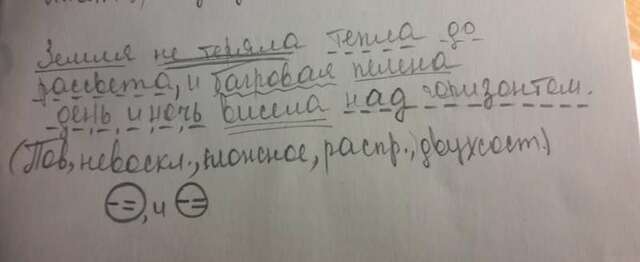 Земля не теряла тепла до
рассвета, и багровая пелена
день и ночь висела над горизонтом.
(Пов., невоскл., сложное, распр., двухсост.)
(-=), и (-=)